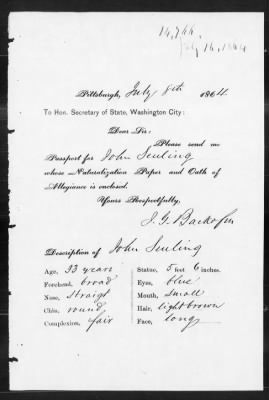 14,766
July 16, 1864
Pittsburgh, July 8th 1864
To Hon. Secretary of State, Washington City:
Dear Sir:
Please send me
Passport for John Seuling
whose Naturalization Paper and Oath of
Allegiance is enclosed.
Yours Respectfully,
J. G. Backofen
Description of John Seuling
Age, 33 years
Forehead, broad
Nose, straight
Chin, round
Complexion, fair
Statue, 5 feet 6 inches.
Eyes, blue
Mouth, small
Hair, light brown
Face, long